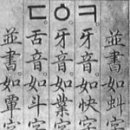 並書如虯字
ㅋ牙音如快字
ㆁ牙音如業字
ㄷ舌音如斗字
並書如覃字